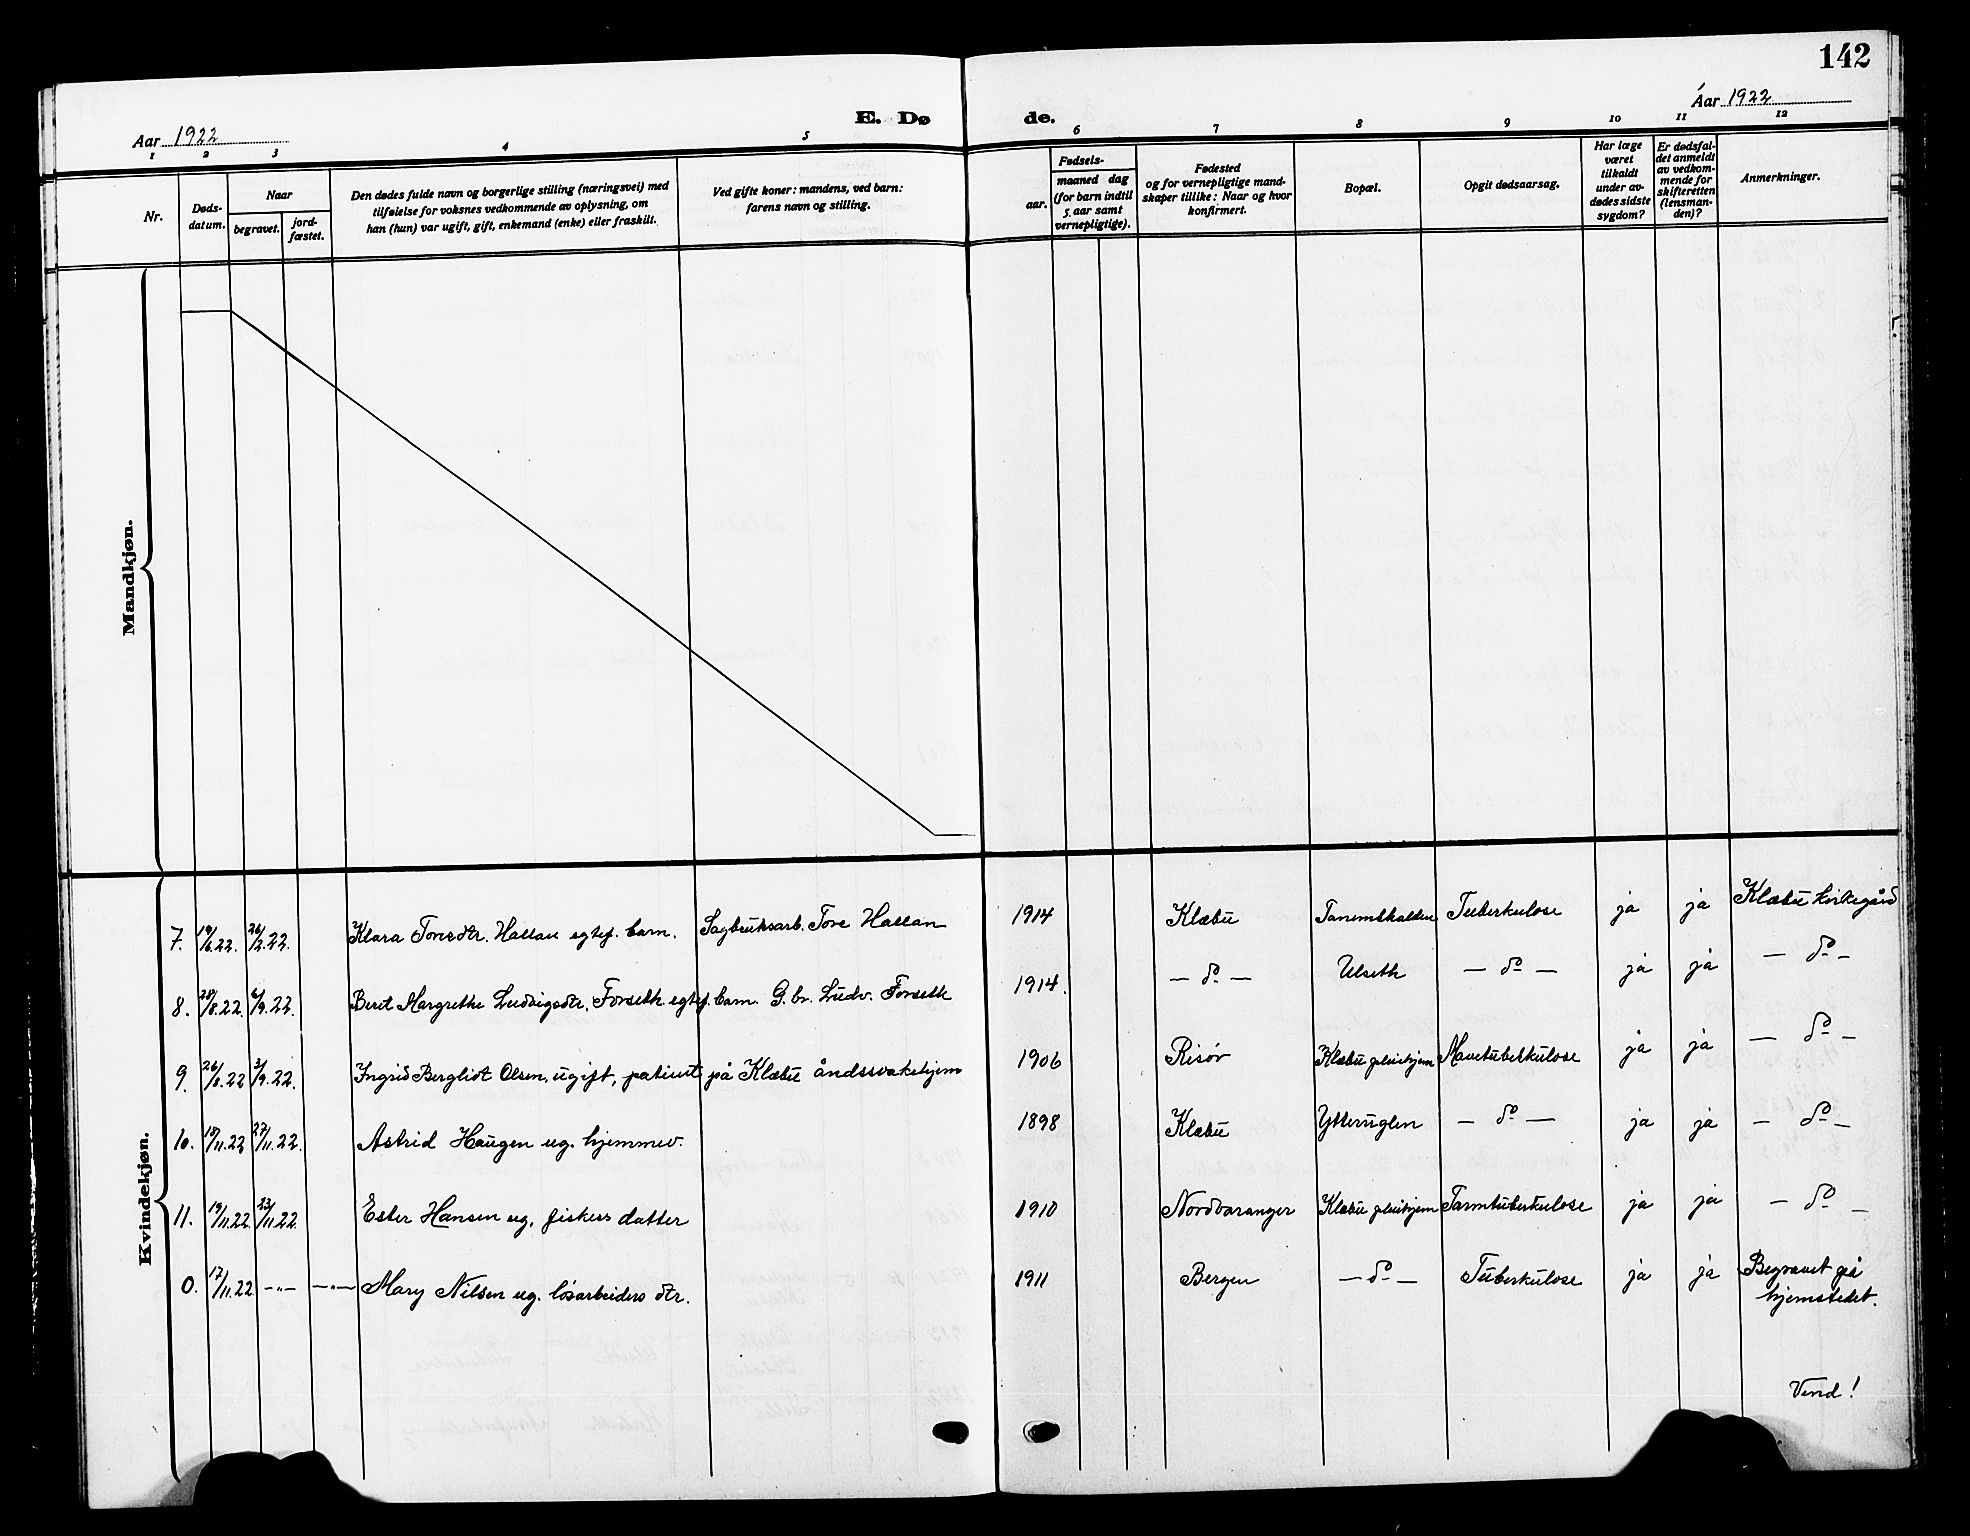 142
Aar 1922
Aar 1922
E. Dø
de.
1 2 3 4 5 6 7 8 9 10 11 12
Nr.
Døds-
datum.
Naar
begravet.
jord-
fæstet.
Den dødes fulde navn og borgerlige stilling (næringsvei) med
tilføielse for voksnes vedkommende av oplysning, om
han (hun) var ugift, gift, enkemand (enke) eller fraskilt.
Ved gifte koner: mandens, ved barn:
farens navn og stilling.
Fødsels-
aar.
maaned dag
(for barn indtil
5 aar samt
vernepligtige).
Fødested
og for vernepligtige mand-
skaper tillike: Naar og hvor
konfirmert.
Bopæl.
Opgit dødsaarsag.
Har læge
været
tilkaldt
under av-
dødes sidste
sygdom?
Er dødsfal-
det anmeldt
av vedkom-
mende for
skifteretten
(lensman-
den)?
Anmerkninger.
Mandkjøn.
Kvindekjøn.
7. 19/6.22. 26/2.22. Klara Toresdtr. Hallan egtef. barn. Sagbruksarb. Tore Hallan 1914 Klæbu Tanemskalden Tuberkulose ja ja Klæbu kirkegård
8. 28/8.22. 6/9.22. Beret Margrethe Ludvigsdtr. Forseth egtef. barn. G.br. Ludv. Forseth 1914. — do — Ulseth — do — ja ja — do —
9. 26/8.22 3/9.22. Ingrid Bergliot Olsen, ugift, patient på Klæbu åndssvakehjem 1906 Risør Klæbu pleiehjem Mavetuberkulose ja ja — do —
10. 18/11.22 27/11.22. Astrid Haugen ug. hjemmev. 1898 Klæbu Ytteruglen — do — ja ja — do —
11. 19/11.22 23/11.22. Ester Hansen ug. fiskers datter 1910 Nordvaranger Klæbu pleiehjem Tarmtuberkulose ja ja — do —
0. 17/11.22 —„— —„— Mary Nilsen ug. løsarbeiders dtr. 1911 Bergen — do — Tuberkulose ja ja Begravet på
hjemstedet.
Vend!